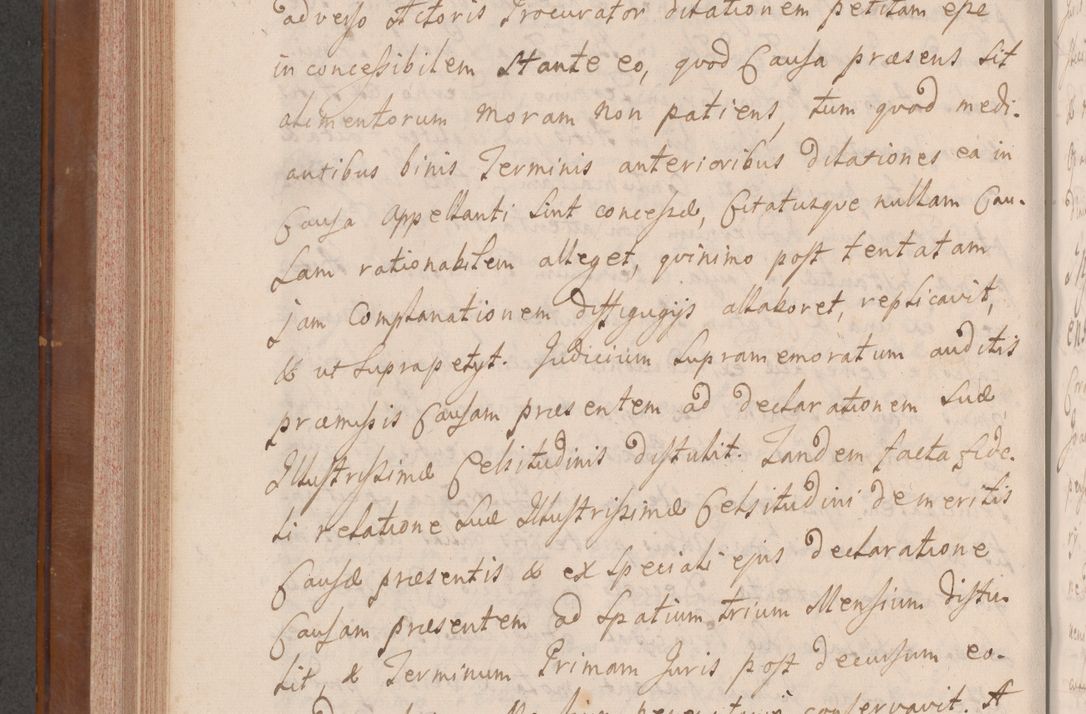 adverso Actoris Procurator dilationem petitam esse
in concessibilem Stante eo, quod Causa præsens sit
alimentorum moram non patiens, tum quod medi-
antibus binis Terminis anterioribus dilationes ea in
Causa Appellanti sint concessæ, Citatusque nullam Cau-
sam rationabilem alleget, quinimo post tentatam
jam Complanationem diffigugijs allaboret, replicavit,
& ut supra petijt. Judicium supramemoratum auditis
præmissis Causam præsentem ad declarationem Suæ
Illustrissimæ Celsitudinis distulit. Tandem facta fide-
li relatione Suæ Illustrissimæ Celsitudini de meritis
Causæ præsentis & ex speciali ejus declaratione
Causam præsentem ad spatium trium Mensium distu-
lit, & Terminum Primam Juris post decursum eo-
conservavit. A